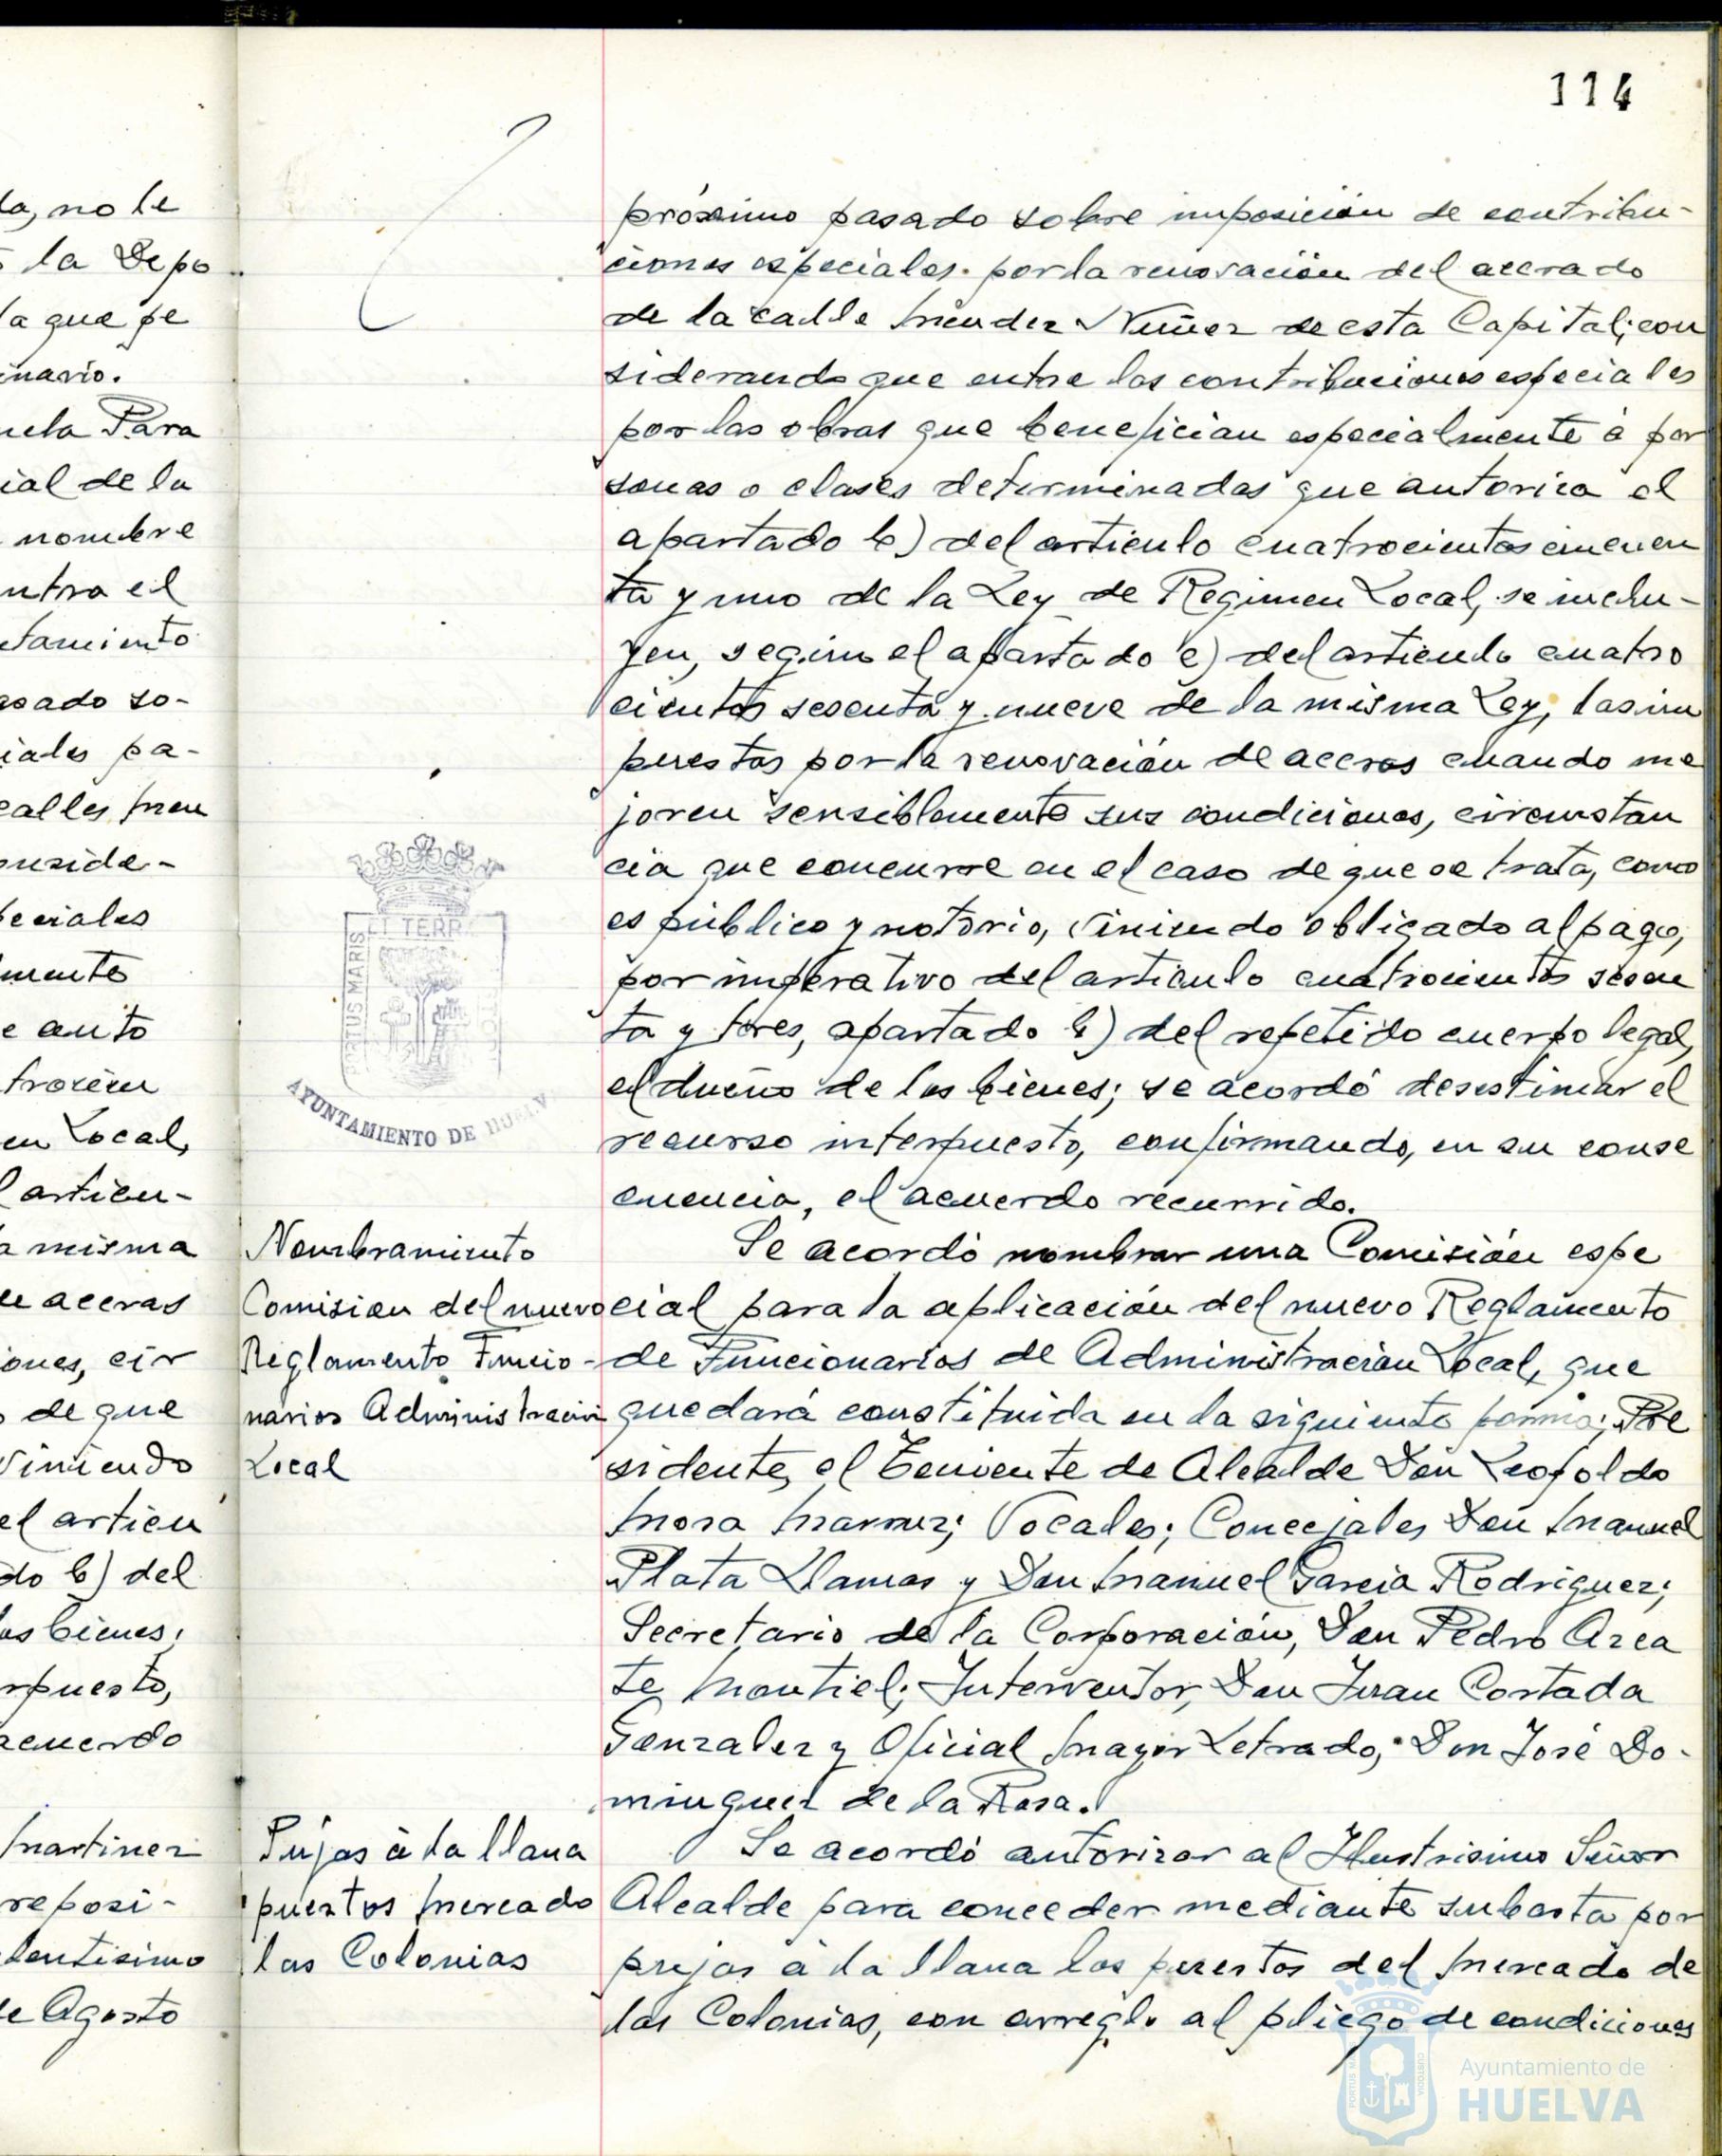 114
da, no le
la Depo
la que pe
inario.
uela Para
ial de la
nombre
ntra el
tamiento
asado so-
iales pa-
calles Men
onside-
peciales
mente
e auto
trocien
en Local,
l articu-
a misma
de aceras
iones, cir
de que
viniendo
el articu
do b) del
os bienes;
rpuesto,
acuerdo
Martinez
reposi-
lentisimo
de Agosto
ET TERR
PORTUS MARIS
AYUNTAMIENTO DE HUELVA
próximo pasado sobre imposición de contribu-
ciones especiales por la renovación del acerado
de la calle Mendez Nuñez de esta Capital; con
siderando que entre las contribuciones especiales
por las obras que benefician especialmente á per
sonas o clases determinadas que autoriza el
apartado b) del articulo cuatrocientos cincuen
ta y uno de la Ley de Regimen Local, se inclu-
yen, según el apartado e) del articulo cuatro
cientos sesenta y nueve de la misma Ley, las im
puestas por la renovación de aceras cuando me
joren sensiblemente sus condiciones, circunstan
cia que concurre en el caso de que se trata, como
es público y notorio, viniendo obligado al pago,
por imperativo del articulo cuatrocientos sesen
ta y tres, apartado b) del repetido cuerpo legal,
el dueño de los bienes; se acordó desestimar el
recurso interpuesto, confirmando, en su conse
cuencia, el acuerdo recurrido.
Nombramiento
Comision del nuevo
Reglamento Funcio-
narios Administración
Local
Se acordó nombrar una Comisión espe
cial para la aplicación del nuevo Reglamento
de Funcionarios de Administración Local, que
quedará constituida en la siguiente forma: Pre
sidente, el Teniente de Alcalde Don Leopoldo
Mora ; Vocales; Concejales Don Manuel
Plata Llamas y Don Manuel Garcia Rodriguez;
Secretario de la Corporación, Don Pedro Arca
te Montiel; Interventor, Don Juan Costada
Gonzalez y Oficial Mayor Letrado, Don José Do-
minguez de la Rosa.
Pujas á la llana
puestos Mercado
las Colonias
Se acordó autorizar al Ilustrisimo Señor
Alcalde para conceder mediante subasta por
pujas á la llana los puestos del Mercado de
las Colonias, con arreglo al pliego de condiciones
Ayuntamiento de
HUELVA